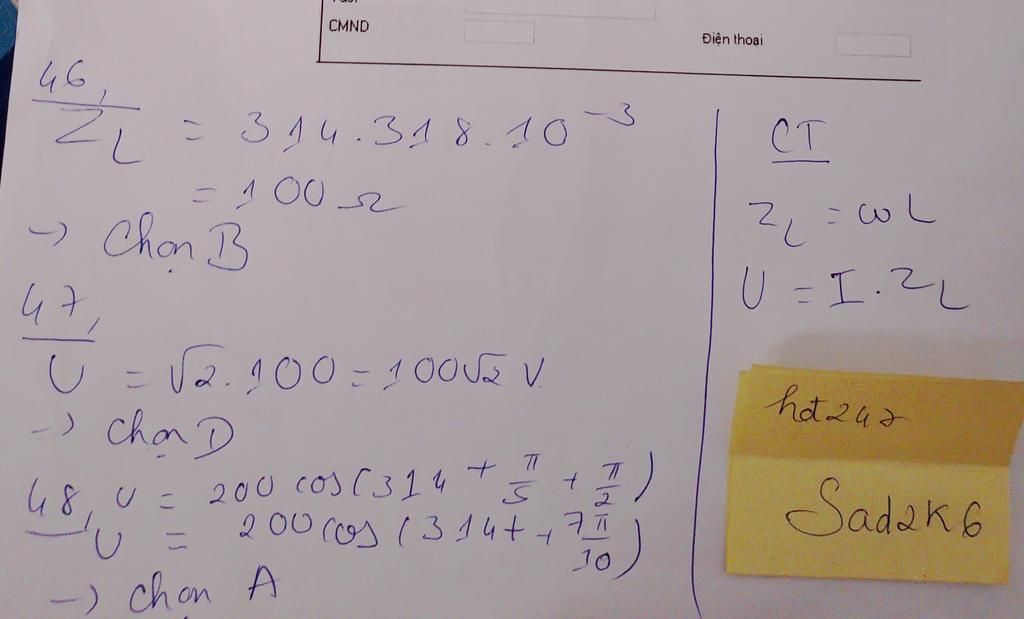 CMND
Điện thoại
46,
Z_L = 314.318.10^-3
= 100 Ω
-> Chọn B
47,
U = √2.100 = 100√2 V.
-> Chọn D
48, U = 200 cos(314t + π/5 + π/2)
U = 200 cos(314t + 7π/10)
-> Chọn A
CT
Z_L = ωL
U = I.Z_L
hdt247
Sad2K6